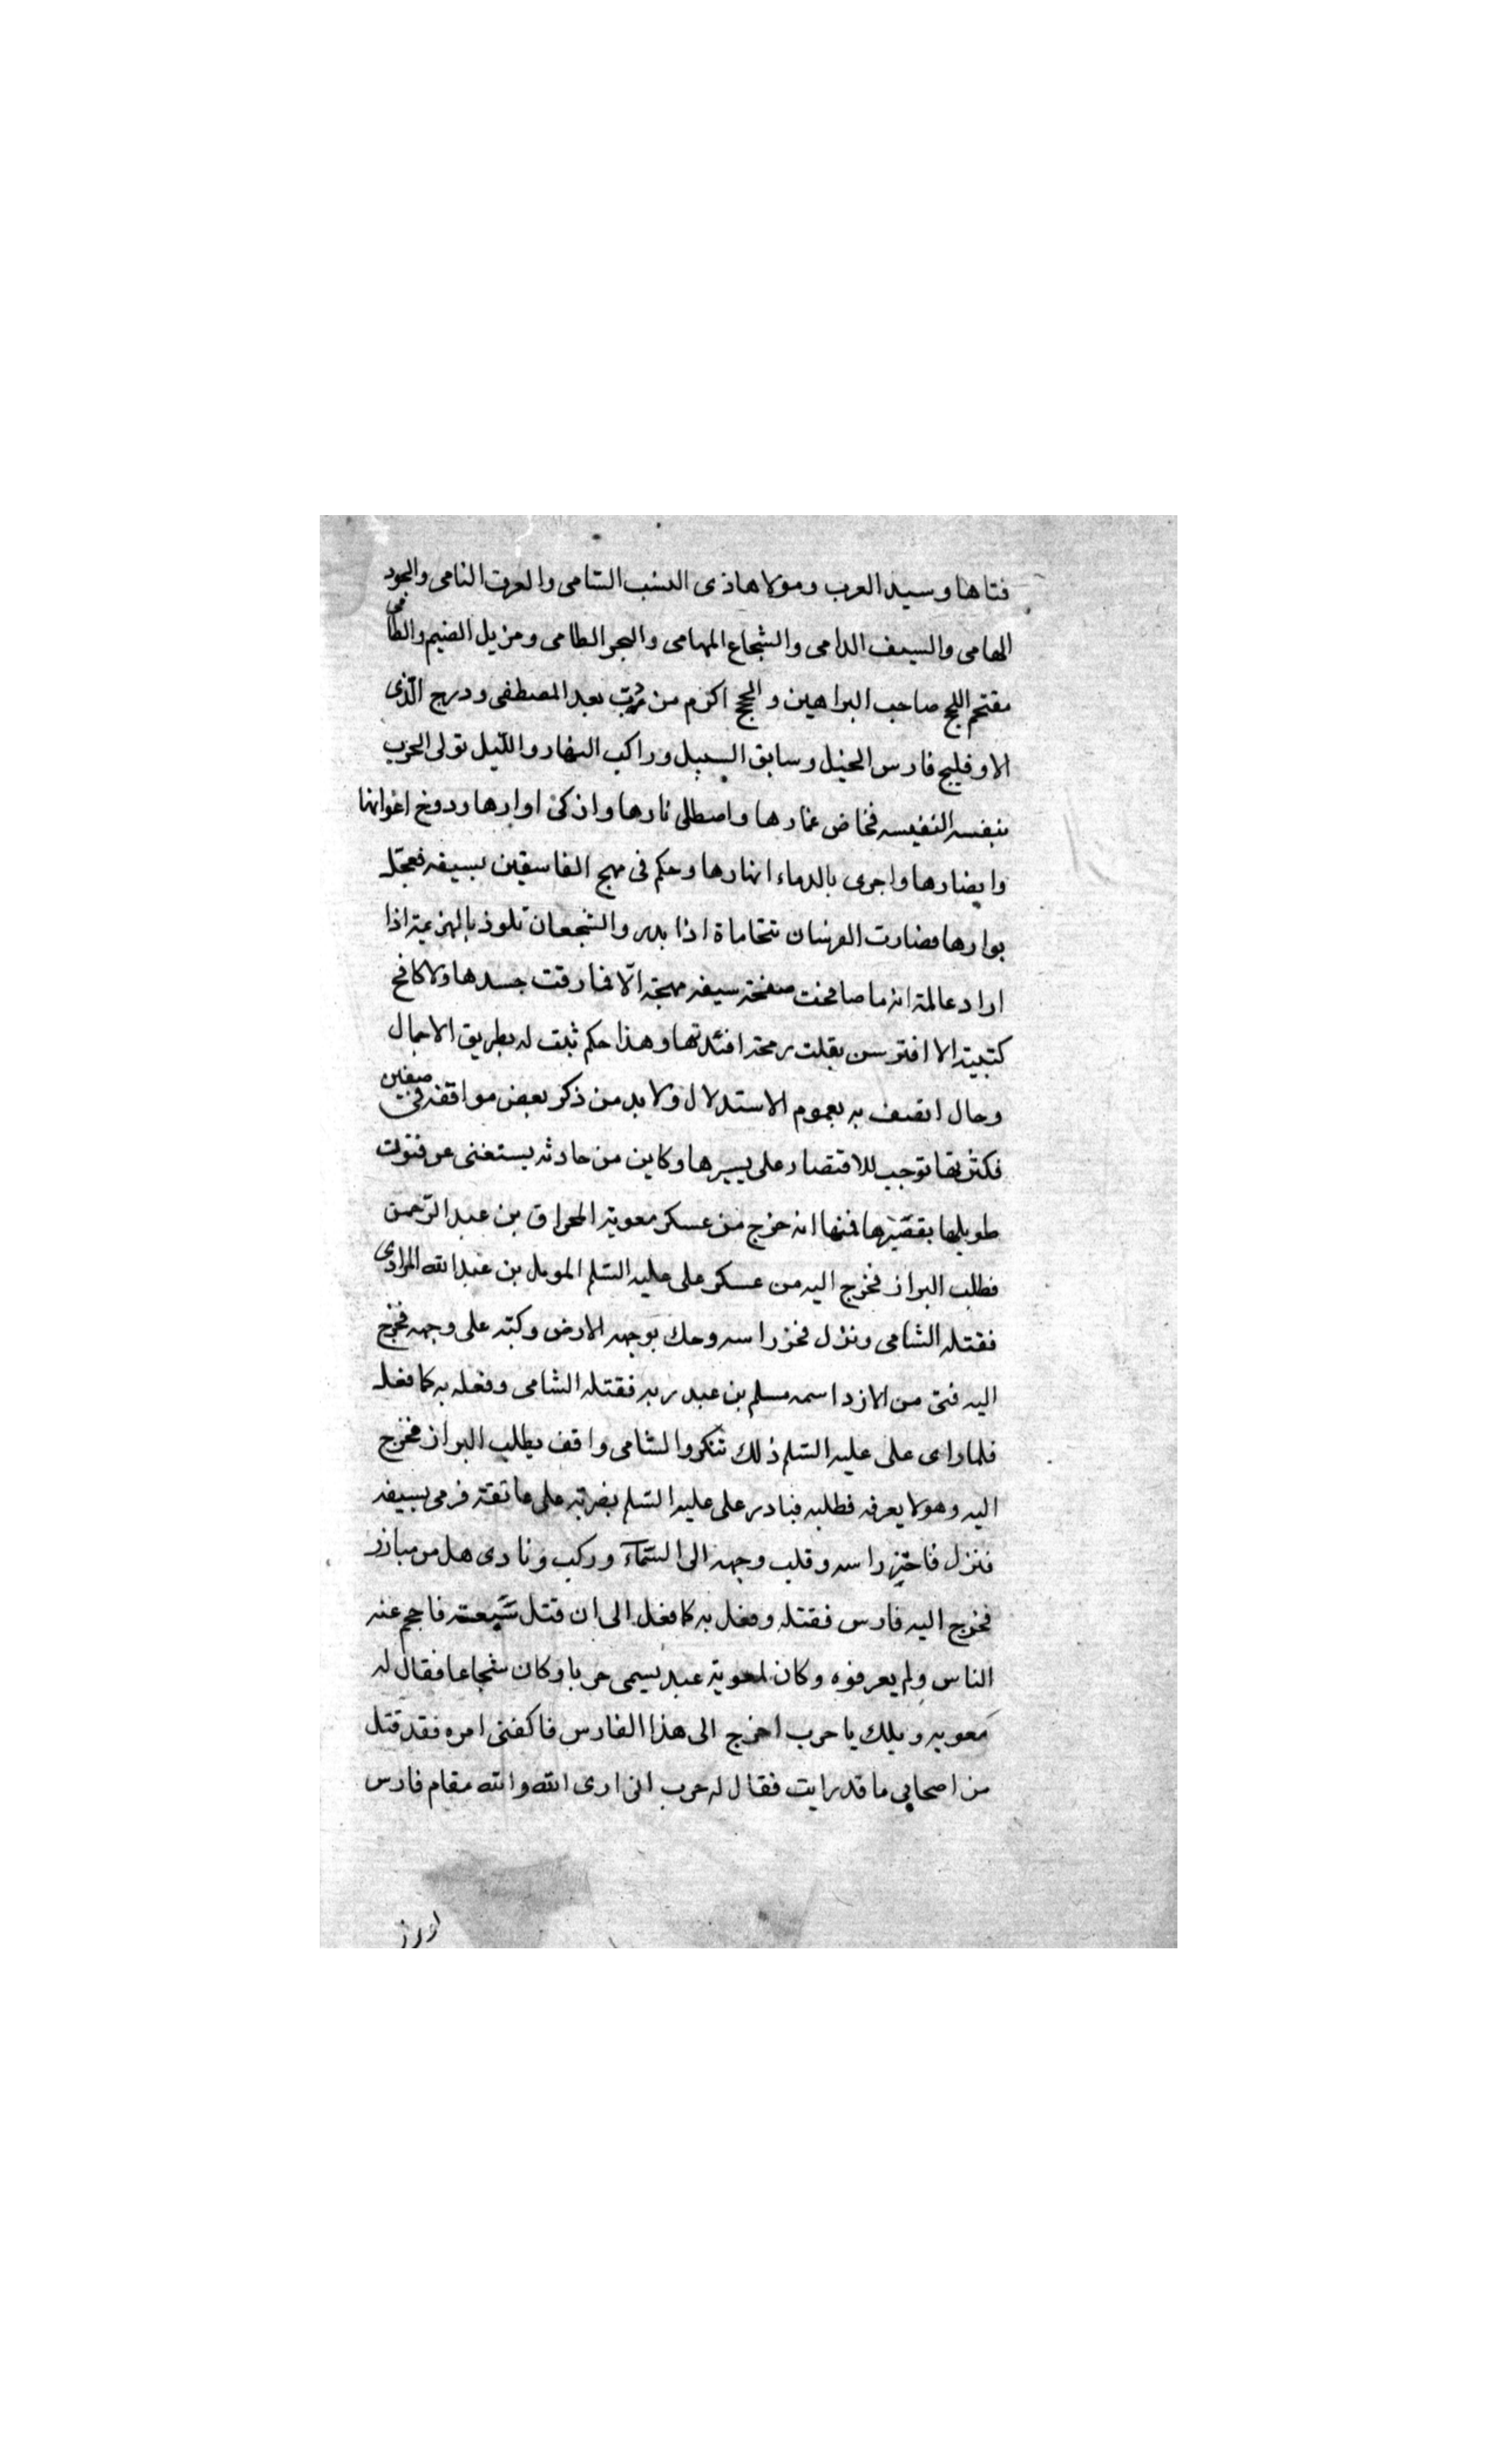 فتاها وسيد العرب ومولاها ذى النسب السّامى والعرق النامى والجود
الهامى والسيف الدامى والشجاع المهامى والبحر الطامى ومزيل الضيم والظامى
مقتحم اللجج صاحب البراهين والحجج اكرم من دبّ بعد المصطفى ودرج الّذى
الا وفليج فارس الخيل وسابق السيل وراكب النهار والليل تولى الحرب
بنفسه النفيسه فخاض غمارها واصطلى نارها واذكى اوارها ودوخ اعوانها
وانصارها واجرى بالدماء انهارها وحكم فى مهج الفاسقين بسيفه فعجّل
بوارها فصارت الفرسان تتحاماة اذا بدر والشجعان تلوذ بالهزيمة اذا
اراد عالمة انه ما صافحت صفحة سيفه مهجة الّا فارقت جسدها ولا كافح
كتيبة الا افترس بثعلب رمحه افئدتها وهذا حكم ثبت له بطريق الاجمال
وحال اتصف به بعموم الاستدلال ولا بد من ذكر بعض مواقفه فى صفين
فكثرتها توجب للاقتصار على يسيرها وكاين من حادثه يستغنى عن فتوت
طويلها بقصيرها فمنها انه خرج من عسكر معوية المحراق بن عبد الرّحمن
فطلب البراز فخرج اليه من عسكر على عليه السّلم المومل بن عبد الله المرادى
فقتله الشامى ونزل فحز راسه وحك بوجهه الارض وكبّه على وجهه فخرج
اليه فتى من الازد اسمه مسلم بن عبد ربه فقتله الشامى وفعله به كما فعل
فلما راى على عليه السّلم ذلك تنكر والشامى واقف يطلب البراز فخرج
اليه وهو لا يعرفه فطلبه فبادر على عليه السّلم بضربة على عاتقه فرمى بسيفه
فنزل فاحتز راسه وقلب وجهه الى السّمآء وركب ونادى هل من مبارز
فخرج اليه فارس فقتله وفعل به كما فعل الى ان قتل سبعة فاحجم عنه
الناس ولم يعرفوه وكان لمعوية عبد يسمى حربا وكان شجاعا فقال له
معويه ويلك يا حرب اخرج الى هذا الفارس فاكفنى امره فقد قتل
من اصحابى ما قد رايت فقال له حرب انى ارى الله والله مقام فارس